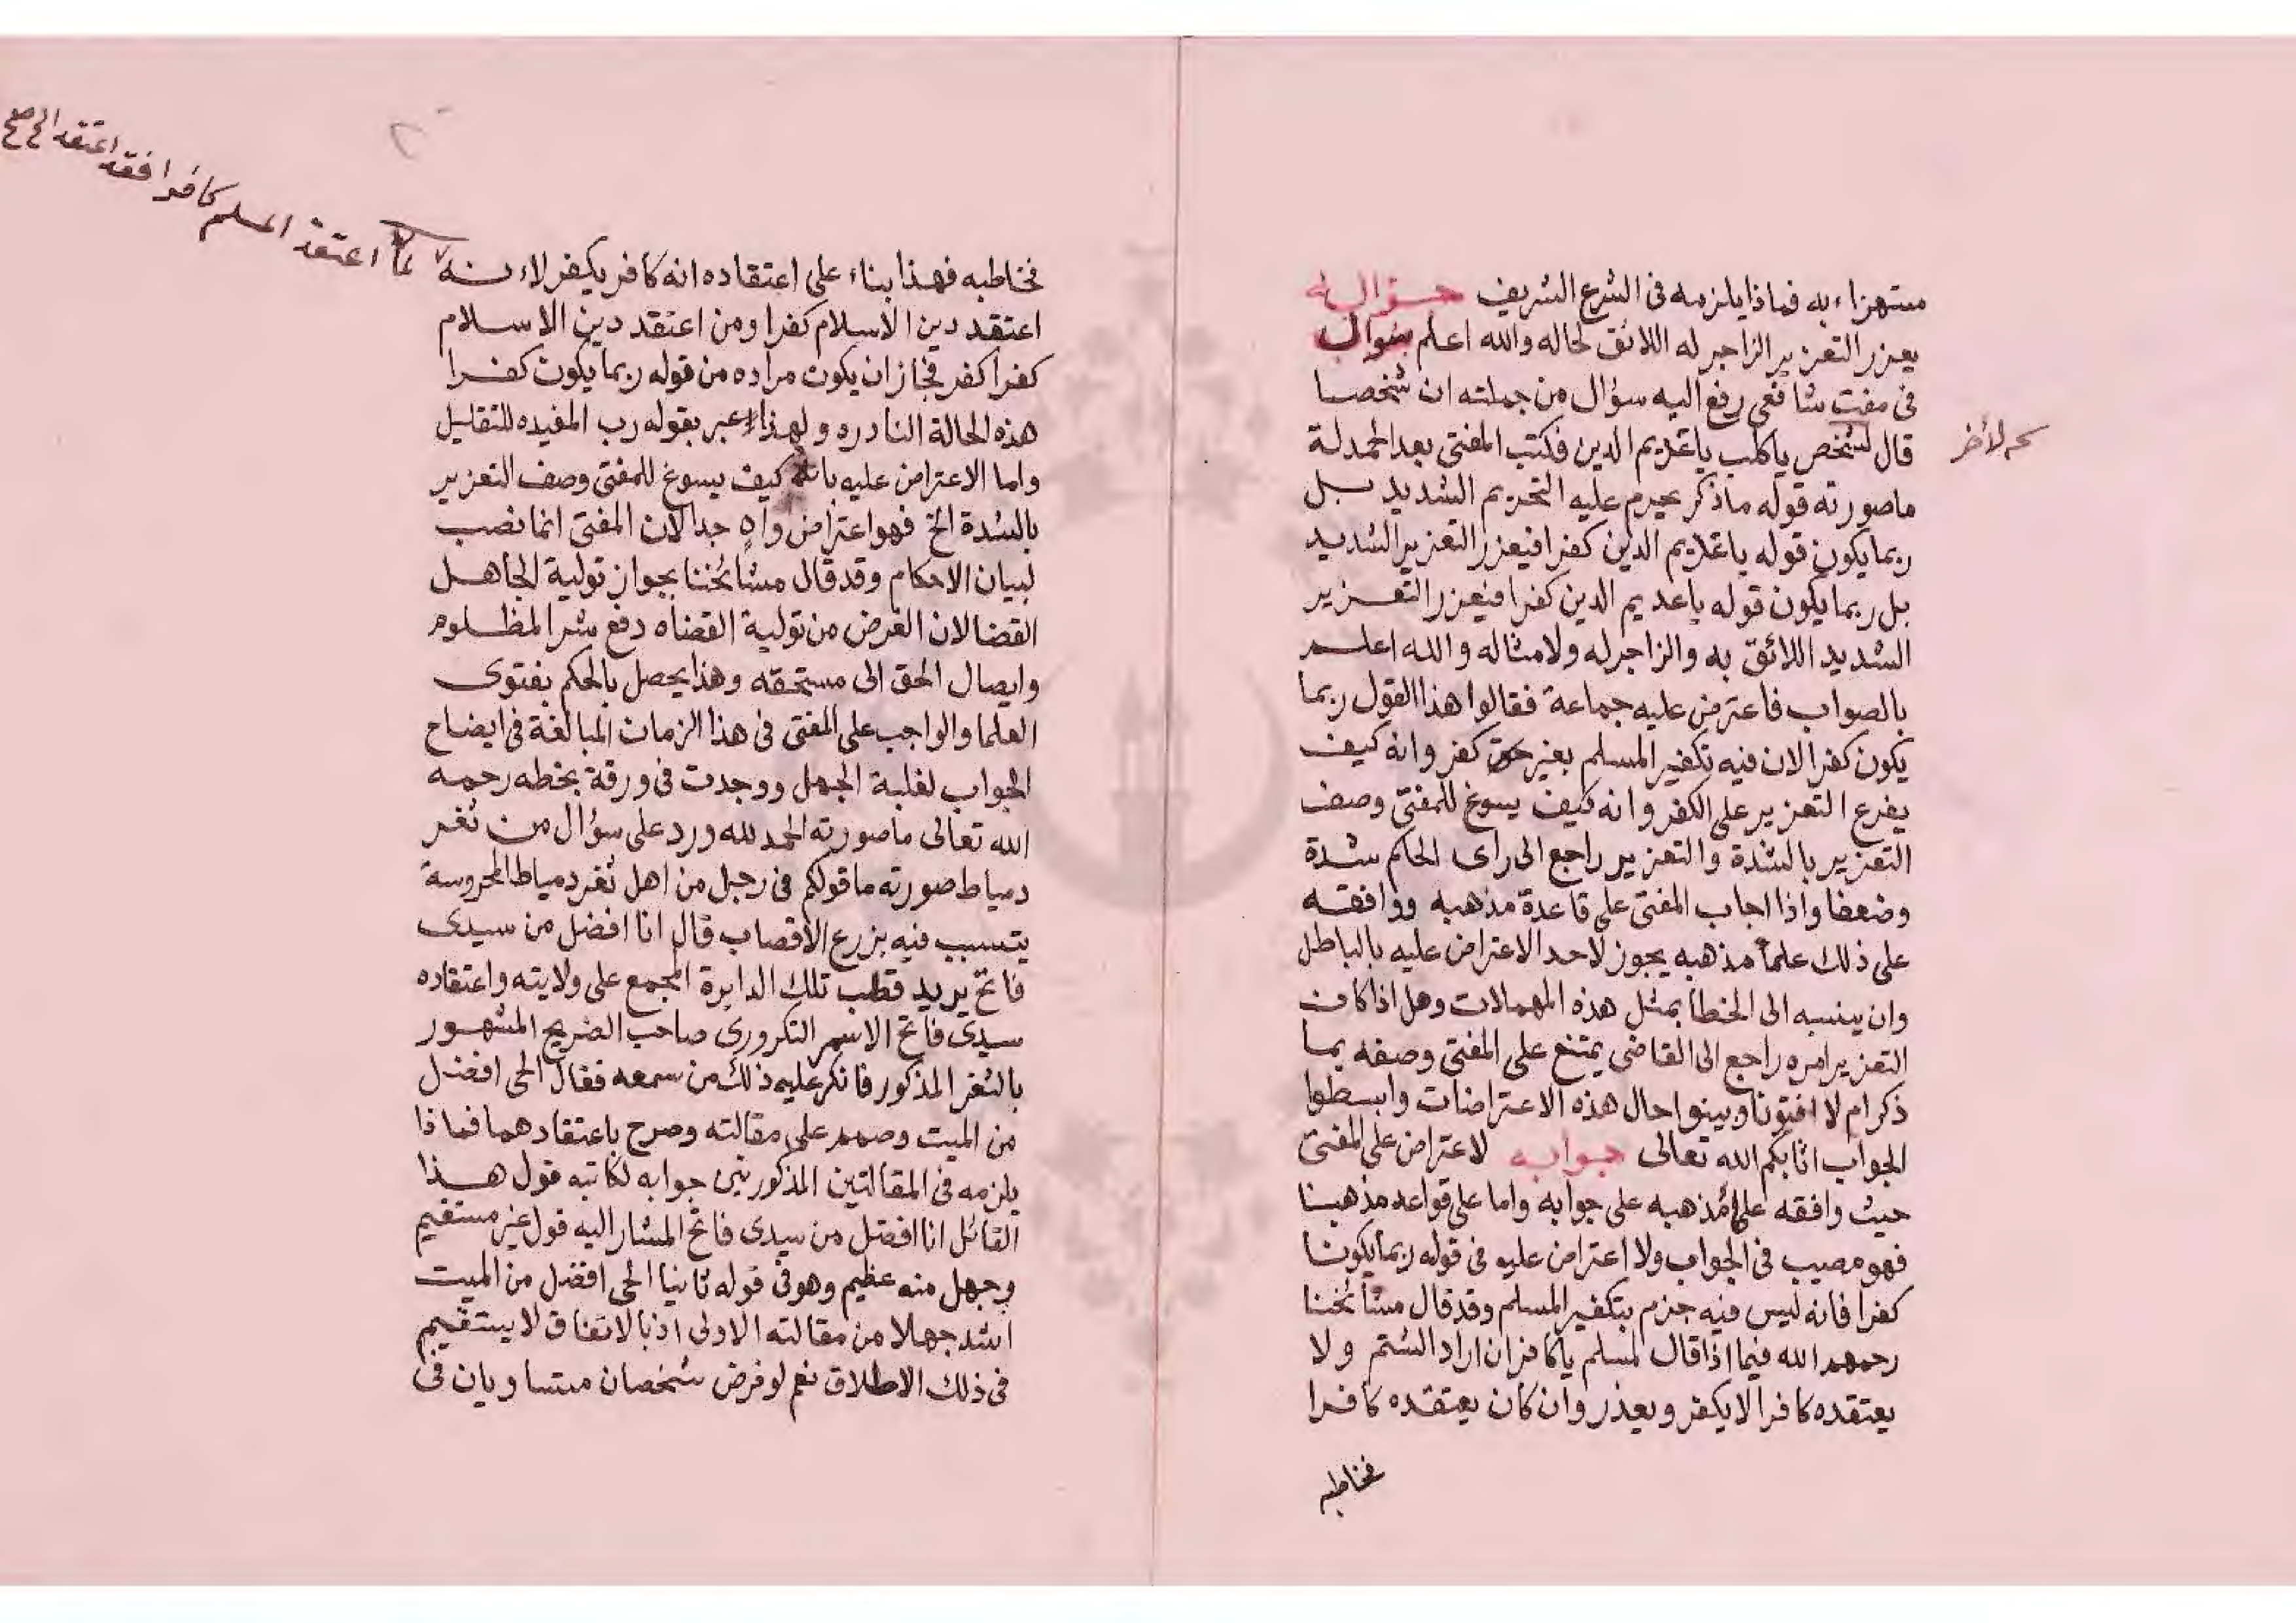 مستهزاء به فماذا يلزمه في الشرع الشريف جوابه
يعزر التعزير الزاجر له اللائق لحاله والله اعلم سؤال
في مفت شافعي رفع اليه سؤال من جملته ان شخصا
قال لشخص ياكلب ياعديم الدين فكتب المفتى بعد الحمدلة
لآخر
ماصورته قوله ماذكر يحرم عليه التحريم الشديد بل
ربما يكون قوله ياعديم الدين كفرا فيعزر التعزير الشديد
بل ربما يكون قوله ياعديم الدين كفرا فيعزر التعزير
الشديد اللائق به والزاجر له ولامثاله والله اعلم
بالصواب فاعترض عليه جماعة فقالوا هذا القول ربما
يكون كفرا لان فيه تكفير المسلم بغير حق كفر وانه كيف
يفرع التعزير على الكفر وانه كيف يسوغ للمفتى وصف
التعزير بالشدة والتعزير راجع الى راى الحاكم شدة
وضعفا واذا اجاب المفتى على قاعدة مذهبه ووافقه
على ذلك علماء مذهبه يجوز لاحد الاعتراض عليه بالباطل
وان ينسبه الى الخطأ بمثل هذه المهملات وهل اذا كان
التعزير امره راجع الى القاضي يمتنع على المفتى وصفه بما
ذكر ام لا افتونا وبينوا حال هذه الاعتراضات وابسطوا
الجواب اثابكم الله تعالى جوابه لا اعتراض على المفتى
حيث وافقه علماء مذهبه على جوابه واما على قواعد مذهبنا
فهو مصيب في الجواب ولا اعتراض عليه في قوله ربما يكون
كفرا فانه ليس فيه جزم بتكفير المسلم وقد قال مشائخنا
رحمهم الله فيما اذا قال لمسلم ياكافر ان اراد الشتم ولا
يعتقده كافرا لا يكفر ويعذر وان كان يعتقده كافرا
فخاطبه
فخاطبه فهذا بناء على اعتقاده انه كافر يكفر لاءنه
لما اعتقد المسلم كافرا فقد اعتقد الخ صح
اعتقد دين الاسلام كفرا ومن اعتقد دين الاسلام
كفرا كفر فجاز ان يكون مراده من قوله ربما يكون كفرا
هذه الحالة النادره ولهذا عبر بقوله رب المفيده للتقليل
واما الاعتراض عليه بانه كيف يسوغ للمفتى وصف التعزير
بالشدة الخ فهو اعتراض واهٍ جدا لان المفتى انما نصب
لبيان الاحكام وقد قال مشائخنا بجواز تولية الجاهل
القضا لان الغرض من تولية القضاه دفع شر المظلوم
وايصال الحق الى مستحقه وهذا يحصل بالحكم بفتوى
العلما والواجب على المفتى في هذا الزمان المبالغة في ايضاح
الجواب لغلبة الجهل ووجدت في ورقة بخطه رحمه
الله تعالى ماصورته الحمد لله ورد على سؤال من ثغر
دمياط صورته ما قولكم في رجل من اهل ثغر دمياط المحروسة
يتسبب فيه بزرع الاقصاب قال انا افضل من سيدى
فاتح يريد قطب تلك الدايرة المجمع على ولايته واعتقاده
سيدى فاتح الاسمر التكرورى صاحب الضريح المشهور
بالثغر المذكور فانكر عليه ذلك من سمعه فقال الحى افضل
من الميت وصمم على مقالته وصرح باعتقادهما فماذا
يلزمه في المقالتين المذكورتين جوابه لكاتبه قول هذا
القائل انا افضل من سيدى فاتح المشار اليه قول غير مستقيم
وجهل منه عظيم وهو في قوله ثانيا الحى افضل من الميت
اشد جهلا من مقالته الاولى اذ بالاتفاق لا يستقيم
في ذلك الاطلاق نعم لو فرض شخصان متساويان في